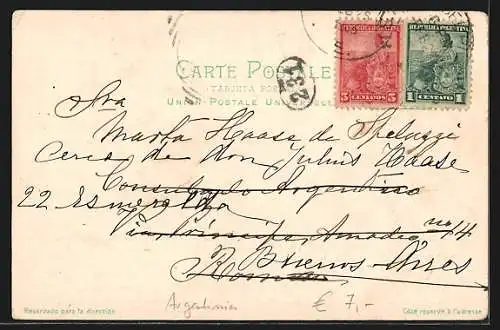 CARTE POSTALE
TARJETA POSTAL
UNION POSTALE UNIVERSELLE
REPUBLICA ARGENTINA
5 CENTAVOS 5
REPUBLICA ARGENTINA
1 CENTAVO 1
132
Sra
Marta Haase de Pelazzi
Cerca de don Julius Haase
Consulado Argentino
22 Esmeralda
Via Principe Amadeo no 14
Buenos-Aires
Roma
Reservado para la dirección
Côté réservé à l'adresse
Argentinien
€ 7,-